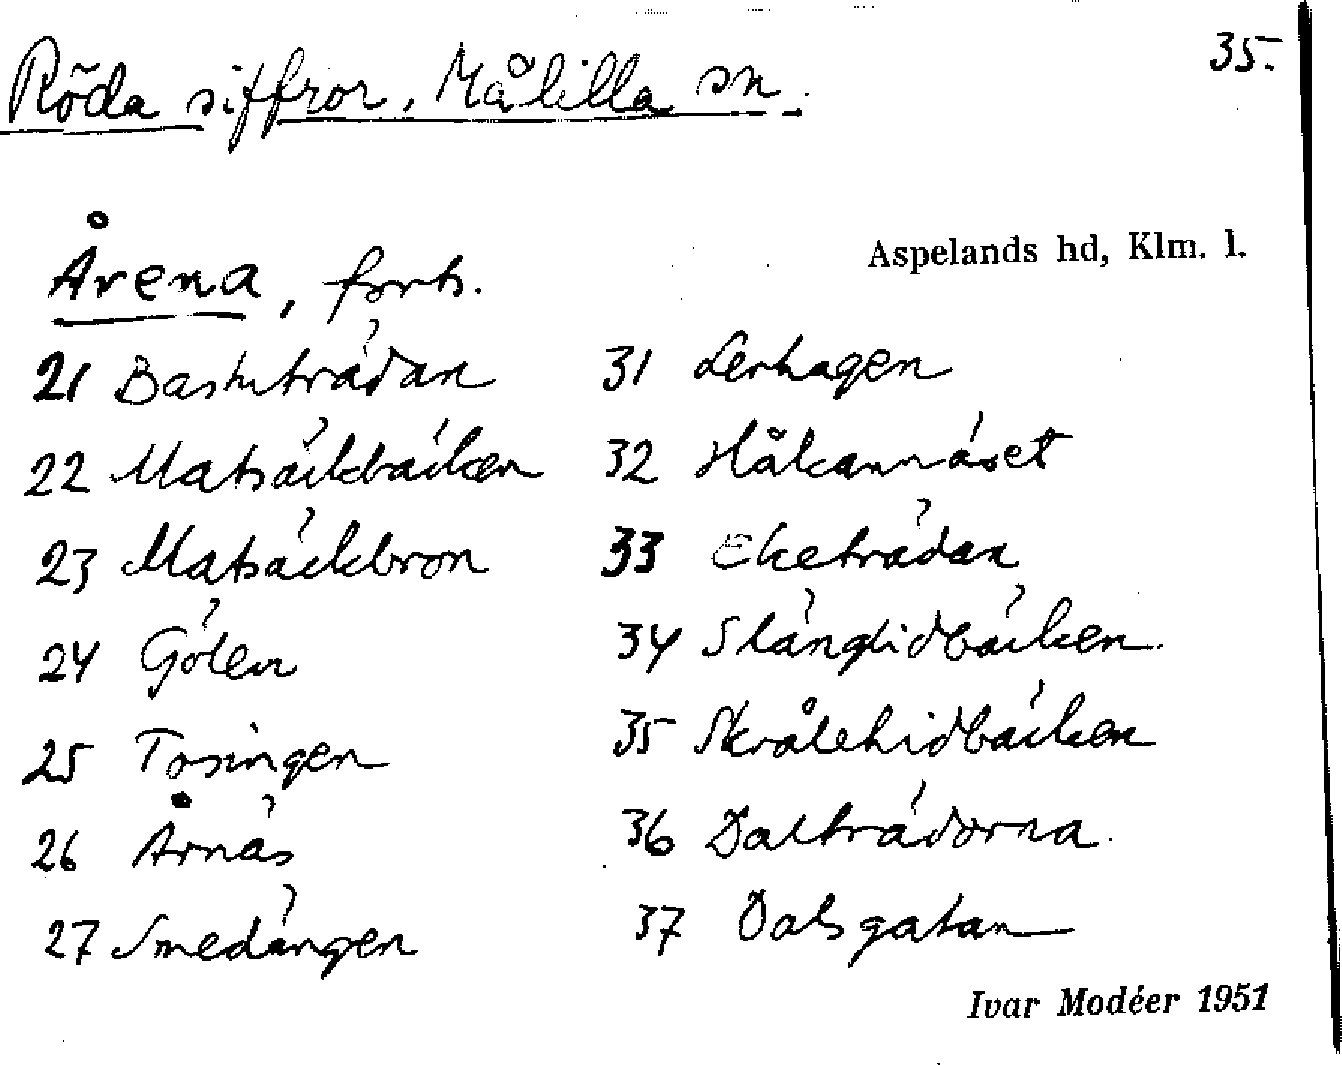 35.
Röda siffror, Målilla sn.
Årena, forts.
Aspelands hd, Klm. l.
21 Basteträdan
22 Matsäckbäcken
23 Matsäckbron
24 Gölen
25 Tosingen
26 Årnäs
27 Smedängen
31 Lerhagen
32 Håkannäset
33 Eketrädan
34 Slänglidbäcken
35 Skrålehidbäcken
36 Dalträdorna
37 Dalsgatan
Ivar Modéer 1951